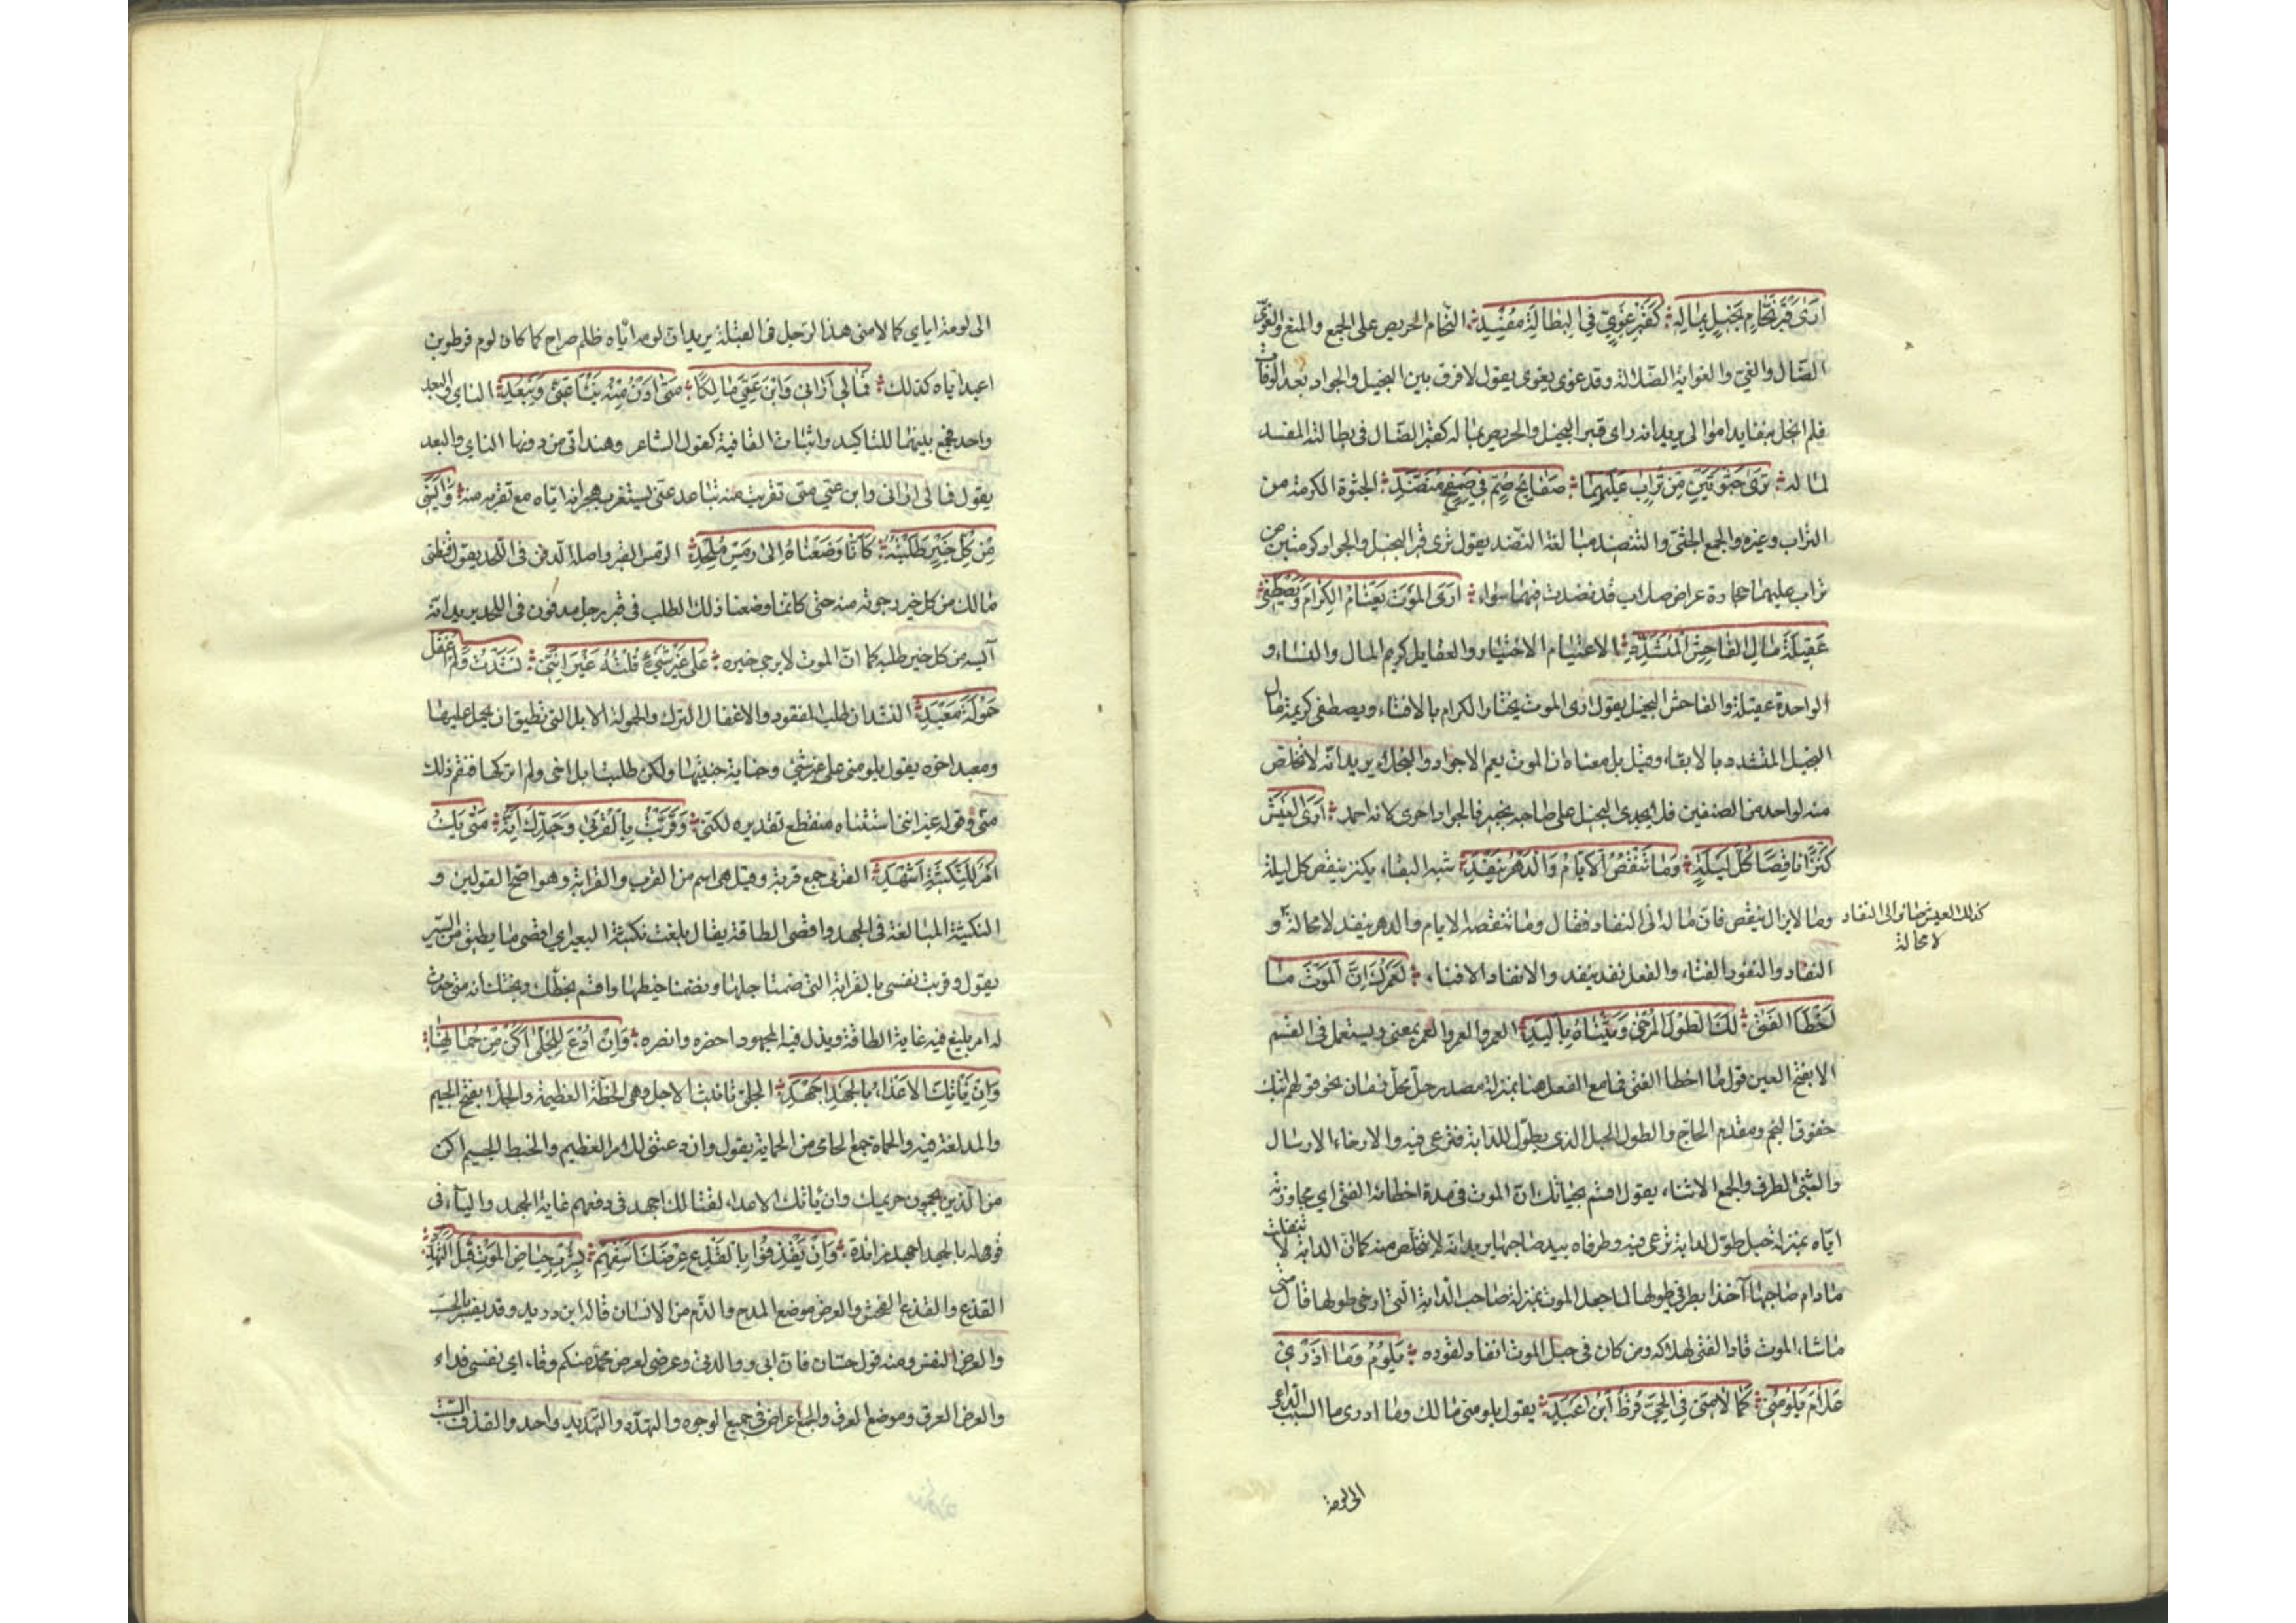 أَرَى قَبْرَ نَحَّامٍ بَخِيلٍ بِمَالِهِ كَقَبْرِ غَوِيٍّ فِي الْبَطَالَةِ مُفْسِدِ النحام الحريص على الجمع والمنع والغوي
الضال والغي والغواية الضلالة وقد غوى يغوى يقول لا فرق بين البخيل والجواد بعد الوفاة
فلم ابخل يريد انه راى قبر البخيل والحريص بماله كقبر الضال في بطالته المفسد
لماله تَرَى جُثْوَتَيْنِ مِنْ تُرَابٍ عَلَيْهِمَا صَفَايِحُ صُمٌّ فِي صَفِيحٍ مُنَضَّدِ الجثوة الكومة من
التراب وغيره والجمع الجثى والتنضيد مبالغة النضد يقول ترى قبر البخيل والجواد كومتين من
تراب عليهما حجارة عراض صلاب قد نضدت فهما سواء أَرَى الْمَوْتَ يَعْتَامُ الْكِرَامَ وَيَصْطَفِي
عَقِيلَةَ مَالِ الْفَاحِشِ الْمُتَشَدِّدِ الاعتيام الاختيار والعقايل كريم المال والنساء و
الواحدة عقيلة والفاحش البخيل يقول ارى الموت يختار الكرام بالافناء ويصطفي كريمة مال
البخيل المتشدد بالابقاء وقيل بل معناه ان الموت يعم الاجواد والبخلاء يريد انه لا تخلص
منه لواحد من الصنفين فلا يجدي البخل على صاحبه بخير فالجواد احرى لانه احمد أَرَى الْعَيْشَ
كَنْزًا نَاقِصًا كُلَّ لَيْلَةٍ وَمَا تَنْقُصُ الْأَيَّامُ وَالدَّهْرُ يَنْفَدِ شبه البقاء بكنز ينقص كل ليلة
وما لا يزال ينقص فان ماله الى النفاد فقال وما تنقصه الايام والدهر ينفد لا محالة و
كذلك العيش صائر الى النفاد
لا محالة
النفاد والنفود الفناء والفعل نفد ينفد والانفاد الافناء لَعَمْرُكَ إِنَّ الْمَوْتَ مَا
أَخْطَأَ الْفَتَى لَكَالطِّوَلِ الْمُرْخَى وَثِنْيَاهُ بِالْيَدِ العمر والعمر والعمر بمعنى ولا يستعمل في القسم
الا بفتح العين قوله ما اخطا الفتى فما مع الفعل هنا بمنزلة مصدر حل محل زمان نحو قولهم اتيك
خفوق النجم ومقدم الحاج والطول الحبل الذي يطول للدابة فترعى فيه والارخاء الارسال
والثنى الطرف والجمع الاثناء يقول اقسم بحياتك ان الموت في مدة اخطائه الفتى اي مجاوزته
اياه بمنزلة حبل طول لدابة ترعى فيه وطرفاه بيد صاحبها يريد انه لا يتخلص منه كما ان الدابة لا تفلت
ما دام صاحبها آخذا بطرفي طولها لما جعل الموت بمنزلة صاحب الدابة التي ارخى طولها قال متى
ما شاء الموت قاد الفتى لهلاكه ومن كان في حبل الموت انقاد لقوده يَلُومُ وَمَا أَدْرِي
عَلَامَ يَلُومُنِي كَمَا لَامَنِي فِي الْحَيِّ قُرْطُ ابْنُ أَعْبَدِ يقول يلومني مالك وما ادري ما السبب الداعي
الى لومه
الى لومه اياي كما لامني هذا الرجل في القبيلة يريد ان لومه اياه ظلم صراح كما كان لوم قرط بن
اعبد اياه كذلك فَمَالِي أَرَانِي وَابْنَ عَمِّي مَالِكًا مَتَى أَدْنُ مِنْهُ يَنْأَ عَنِّي وَيَبْعُدِ الناي والبعد
واحد فجمع بينهما للتاكيد واثبات القافية كقول الشاعر وهند اتى من دونها الناي والبعد
يقول فما لي اراني وابن عمي متى تقربت منه تباعد عني يستغرب هجرانه اياه مع تقربه منه وَأَيْأَسَنِي
مِنْ كُلِّ خَيْرٍ طَلَبْتُهُ كَأَنَّا وَضَعْنَاهُ إِلَى رَمْسِ مُلْحَدِ الرمس القبر واصله الدفن في اللحد يقول قنطني
مالك من كل خير رجوته منه حتى كانما وضعنا ذلك الطلب في قبر رجل مدفون في اللحد يريد انه
آيسه من كل خير طلبه كما ان الموت لا يرجى خيره عَلَى غَيْرِ شَيْءٍ قُلْتُهُ غَيْرَ أَنَّنِي نَشَدْتُ وَلَمْ أُغْفِلْ
حَمُولَةَ مَعْبَدِ النشدان طلب المفقود والاغفال الترك والحمولة الابل التي تطيق ان يحمل عليها
ومعبد اخوه يقول يلومني على غير شئ وجناية جنيتها ولكن طلبت ابل اخي ولم اتركها فنقم ذلك
مني وقوله غير انني استثناء منقطع تقديره لكنني وَقَرَّبْتُ بِالْقُرْبَى وَجَدِّكَ إِنَّهُ مَتَى يَكُ
أَمْرٌ لِلنَّكِيثَةِ أَشْهَدِ القربى جمع قربة وقيل هي اسم من القرب والقرابة وهو اصح القولين و
النكيثة المبالغة في الجهد واقصى الطاقة يقال بلغت نكيثة البعير اي اقصى ما يطيق من السير
يقول وقربت نفسي بالقرابة التي ضمنا حبلها ونظمنا خيطها واقسم بحظك وبختك انه متى حدث
له امر يبلغ فيه غاية الطاقة ويبذل فيه المجهود احضره وانصره وَإِنْ أُدْعَ لِلْجُلَّى أَكُنْ مِنْ حُمَاتِهَا
وَإِنْ يَأْتِكَ الْأَعْدَاءُ بِالْجَهْدِ أَجْهَدِ الجلى تانيث الاجل وهي الخطة العظيمة والجلاء بفتح الجيم
والمد لغة فيه والحماة جمع الحامي من الحماية يقول وان دعتني للامر العظيم والخطب الجسيم اكن
من الذين يحمون حريمك وان ياتك الاعداء لقتالك اجهد في دفعهم غاية الجهد والباء في
قوله بالجهد اجهد زائدة وَإِنْ يَقْذِفُوا بِالْقَذْعِ عِرْضَكَ أَسْقِهِمْ بِشُرْبِ حِيَاضِ الْمَوْتِ قَبْلَ التَّهَدُّدِ
القذع والقذع الفحش والعرض موضع المدح والذم من الانسان قاله ابن دريد وقد يفسر بالحسب
والعرض النفس ومنه قول حسان فان ابي ووالدتي وعرضي لعرض محمد منكم وقاء اي نفسي فداء
والعرض العرق وموضع العرق والجمع اعراض في جميع الوجوه والتهدد والتهديد واحد والقذف السب